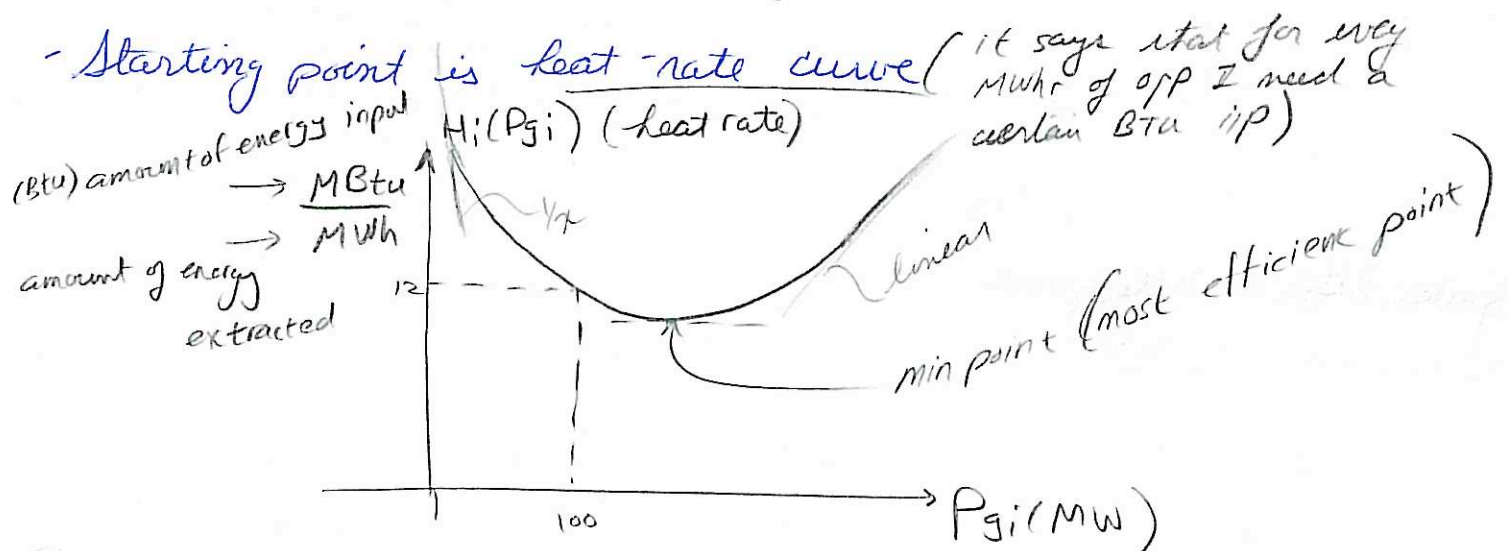 - Starting point is heat-rate curve ( it says that for every
MWhr of o/p I need a
certain BTU i/p)
Hi(Pgi) (heat rate)
(Btu) amount of energy input
→ MBtu
→ MWh
amount of energy
extracted
1/x
linear
12
min point (most efficient point)
100
Pgi(MW)